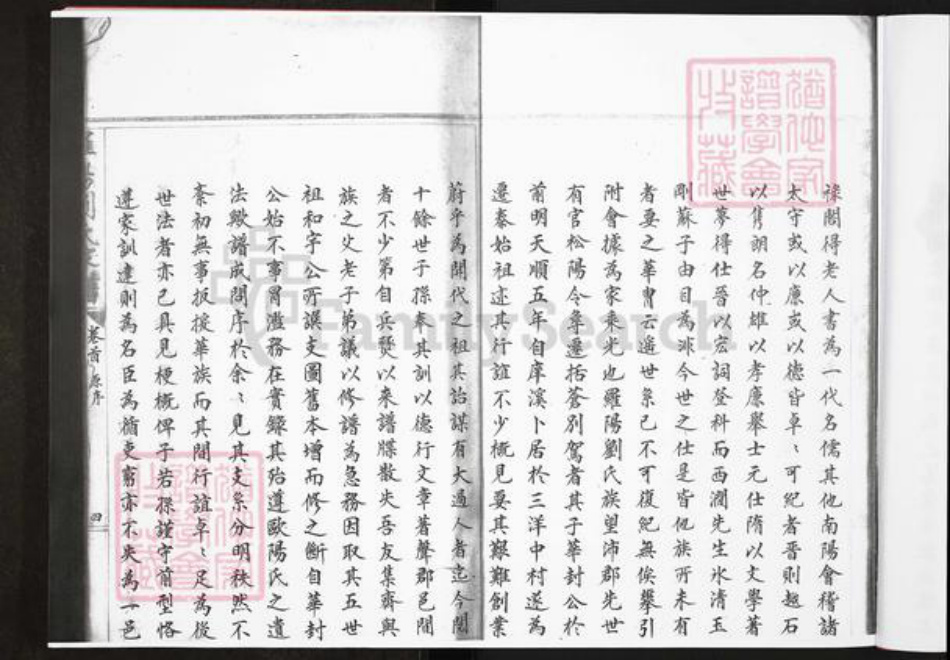 祿閣得老人書為一代名儒其他南陽會稽諸
太守或以廉或以德皆卓〻可紀者晉則越石
以雋朗名仲雄以孝廉舉士元仕隋以文學著
世夢得仕晉以宏詞登科而西澗先生氷清玉
剛蘇子由目為非今世之仕是皆他族所未有
者要之華胄云遥世系已不可復紀無俟攀引
附會據為家乘光也羅陽劉氏族望沛郡先世
有官松陽令尊遷括蒼別駕者其子華封公於
前明天順五年自庠溪卜居於三洋中村遂為
遷泰始祖述其行誼不少概見要其艱難創業
蔚乎為開代之祖其詒謀有大過人者迄今閱
十餘世子孫奉其訓以德行文章著聲郡邑間
者不少第自兵燹以來譜牒散失吾友集齋與
族之父老子弟議以修譜為急務因取其五世
祖和宇公所譔支圖舊本增而修之斷自華封
公始不事冒濫務在實錄其殆遵歐陽氏之遺
法歟譜成問序於余〻見其支系分明秩然不
紊初無事扳援華族而其間行誼卓〻足為後
世法者亦已具見梗概俾子若孫謹守前型恪
遵家訓達則為名臣為循吏窮亦不失為一邑
卷首 源序
四
譜學會
收藏
FamilySearch